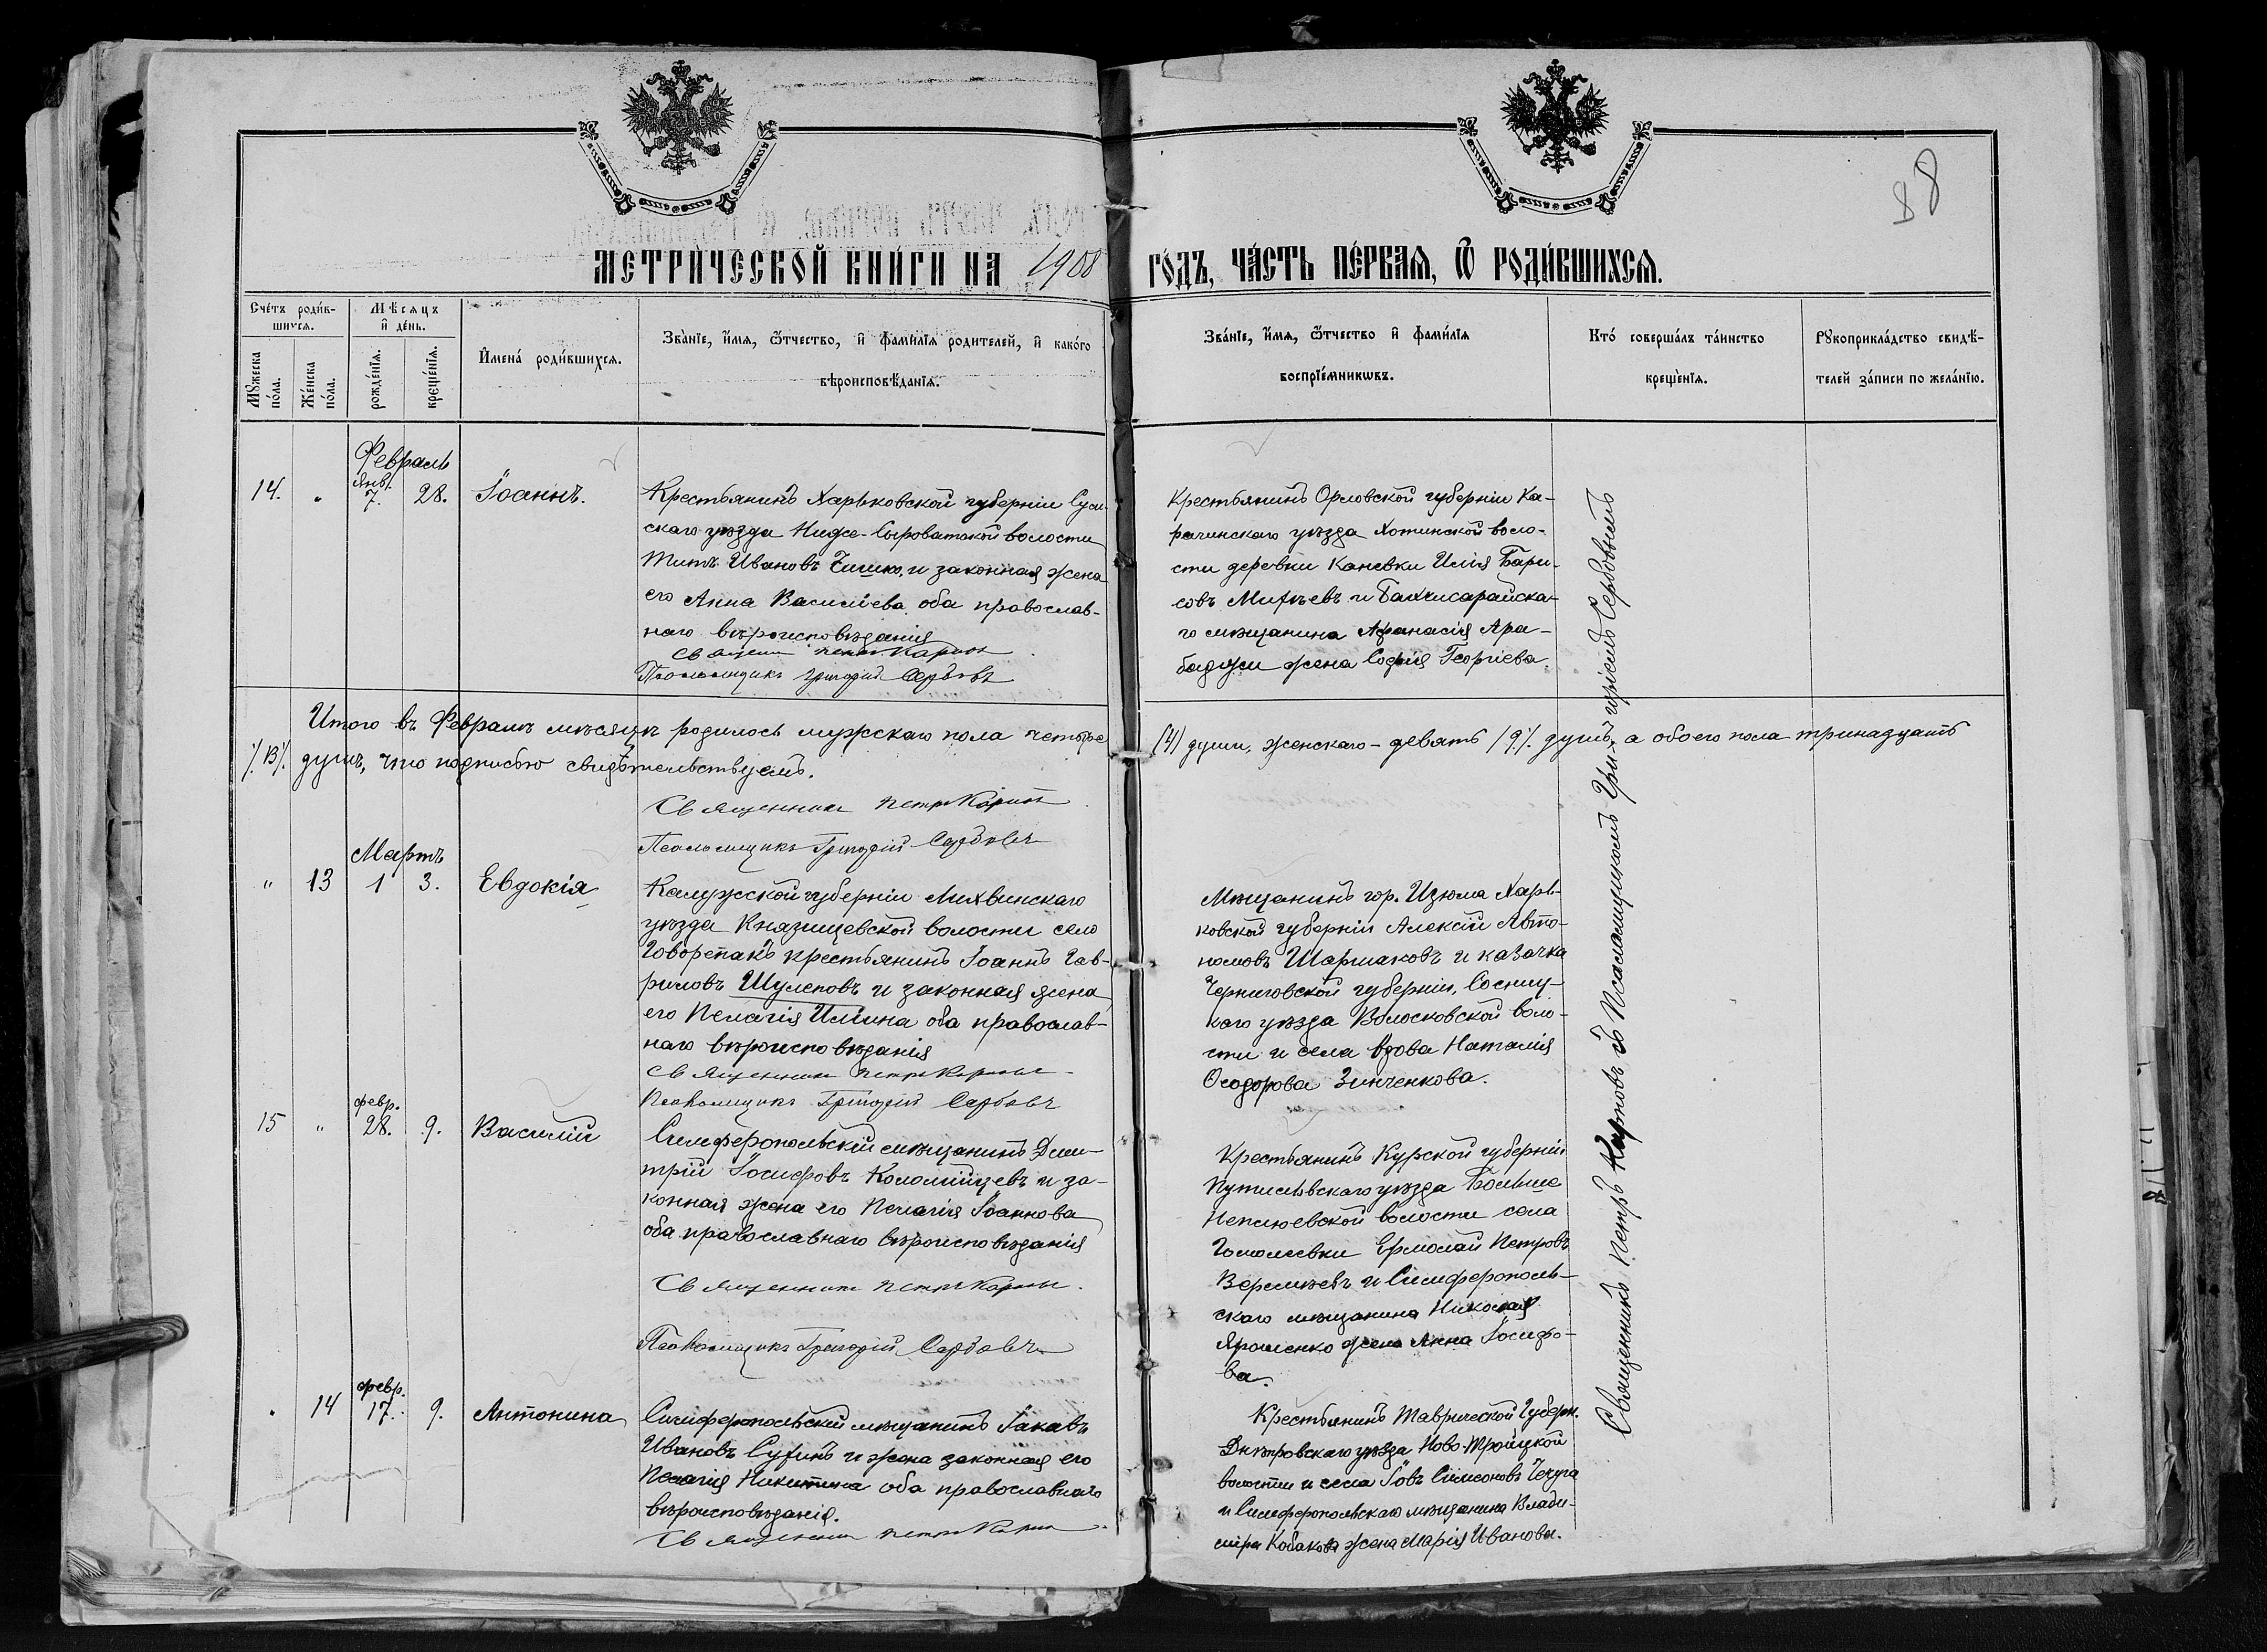 88
МЕТРИ́ЧЕСКОЙ КНИ́ГИ НА 1908 ГО́ДЪ, ЧА́СТЬ ПЕ́РВАЯ, Ѽ РОДИ́ВШИХСЯ.
Сче́тъ роди́в-
шихся.
Мꙋ́жеска по́ла.
Же́нска по́ла.
Мѣ́сяцъ
и҆ де́нь.
рожде́нїя.
креще́нїя.
И҆мена̀ роди́вшихся.
Зва́нїе, и҆́мя, ѻ҆́тчество, и҆ фами́лїя родителей, и҆ како́го
вѣроисповѣ́данїя.
Зва́нїе, и҆́мя, ѻ҆́тчество и҆ фами́лїя
воспрїе́мникѡвъ.
Кто́ соверша́лъ та́инство
креще́нїя.
Рꙋкоприкла́дство свидѣ́-
телей за́писи по жела́нїю.
Февраль
14. " Янв. 7. 28. Іоаннъ.
Крестьянинъ Харьковской губерніи Сум-
скаго уѣзда Ниже-Сыроватской волости
Титъ Ивановъ и законная жена
его Анна Василіева, оба православ-
наго вѣроисповѣданія
Священник Петръ Карповъ
Псаломщикъ Григорій Сербовъ
Крестьянинъ Орловской губерніи Ка-
рачинскаго уѣзда Хотинской воло-
сти деревни Каневки Илія Бари-
совъ Михѣевъ и Бахчисарайска-
го мѣщанина Афанасія Ара-
баджи жена Софія Георгіева.
Итого въ Февралѣ мѣсяцѣ родилось мужскаго пола четыре (4) души, женскаго - девять /9/. душъ, а обоего пола тринадцать
/.13/. душъ, что подписью свидѣтельствуемъ.
Священник Петръ Карповъ
Псаломщикъ Григорій Сербовъ
Мартъ
" 13 1 3. Евдокія
Калужской губерніи Лихвинскаго
уѣзда Князищевской волости село
крестьянинъ Іоаннъ Гав-
риловъ Шулеповъ и законная жена
его Пелагія Иліина оба православ-
наго вѣроисповѣданія
Священник Петръ Карповъ
Псаломщикъ Григорій Сербовъ
Мѣщанинъ гор. Изюма Харь-
ковской губерніи Алексій Авто-
номовъ Шаршаковъ и казачка
Черниговской губерніи, Сосниц-
каго уѣзда Волосковской воло-
сти и села вдова Наталія
Ѳеодорова Зинченкова.
15 " февр. 28. 9. Василій
Симферопольскій мѣщанинъ Дими-
трій Іосифовъ Коломійцевъ и за-
конная жена его Пелагія Іоаннова
оба православнаго вѣроисповѣданія
Священник Петръ Карповъ
Псаломщикъ Григорій Сербовъ
Крестьянинъ Курской губерніи
Путивльскаго уѣзда Больше
Неплюевской волости села
Ермолай Петровъ
Веремѣевъ и Симферополь-
скаго мѣщанина Николая
Ярошенко жена Анна Іосифо-
ва.
" 14 февр. 17. 9. Антонина
Симферопольскій мѣщанинъ Іаковъ
Ивановъ и жена законная его
Пелагія Никитина оба православнаго
вѣроисповѣданія.
Священник Петръ Карповъ
Крестьянинъ Таврической Губерн.
Днѣпровскаго уѣзда Ново-Троицкой
волости и села Іовъ Симеоновъ
и Симферопольскаго мѣщанина Влади-
міра Кабакова жена Марія Иванова.
Священникъ Петръ Карповъ съ Псаломщикомъ Григоріемъ Сербовымъ